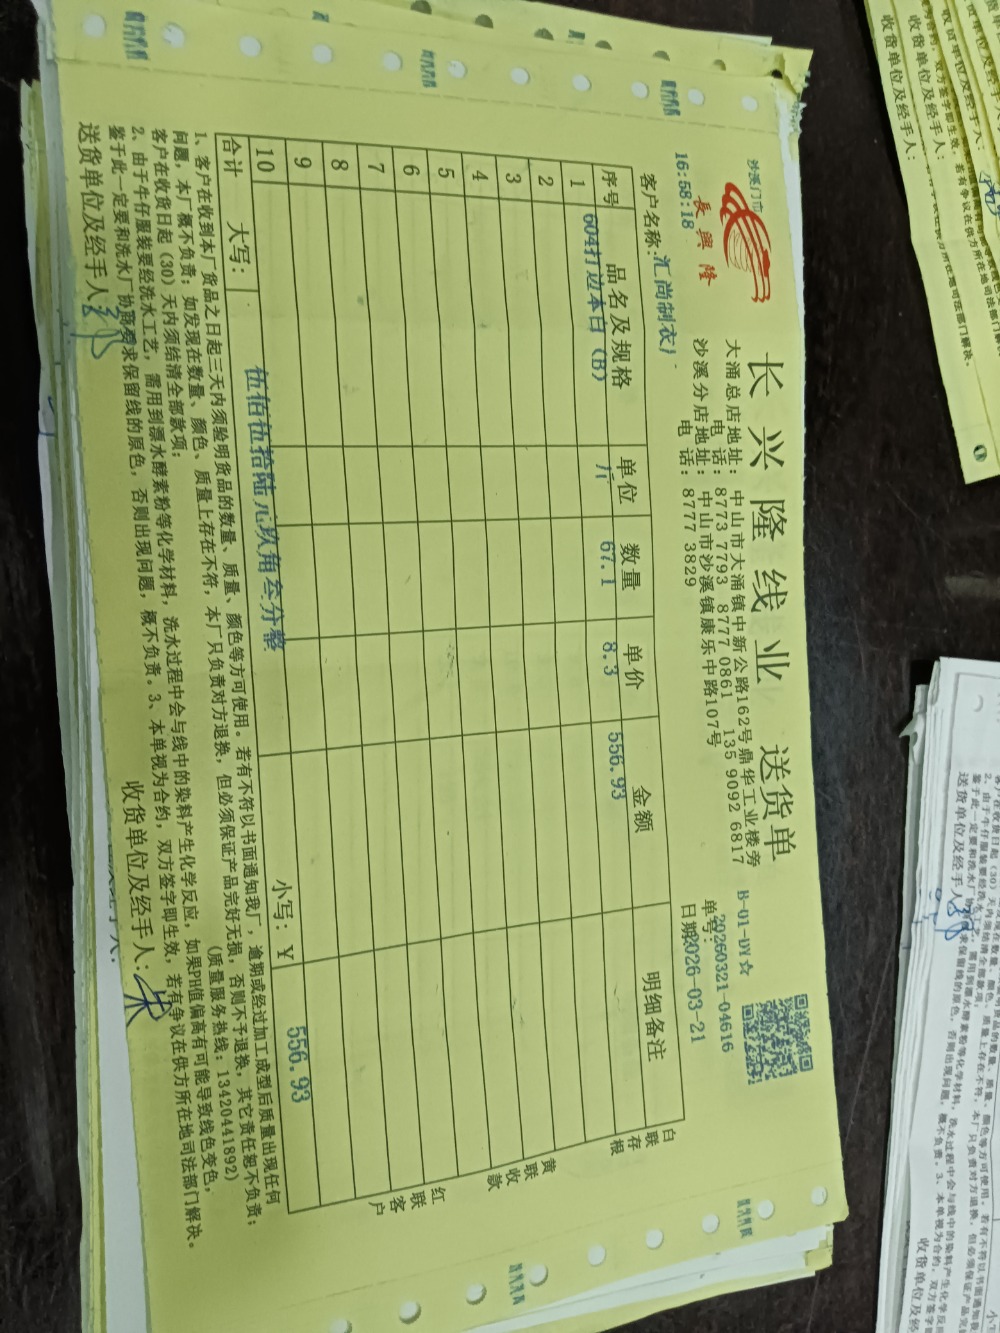 沙溪门市
長興隆
16:58:18
长兴隆线业 送货单
大涌总店地址：中山市大涌镇中新公路162号鼎华工业楼旁
电 话：8773 7793 8777 0861 135 9092 6817
沙溪分店地址：中山市沙溪镇康乐中路107号
电 话：8777 3829
B-01-DY☆
单号：20260321-04616
日期：2026-03-21
客户名称：汇尚制衣厂
序号 品名及规格 单位 数量 单价 金额 明细备注
1 604打边本白（B） 斤 67.1 8.3 556.93
2
3
4
5
6
7
8
9
10
合计 大写： 伍佰伍拾陆元玖角叁分整 小写：￥ 556.93
白联存根
黄联收款
红联客户
1、客户在收到本厂货品之日起三天内须验明货品的数量、质量、颜色等方可使用。若有不符以书面通知我厂，逾期或经过加工成型后质量出现任何
问题，本厂概不负责；如发现在数量、颜色、质量上存在不符，本厂只负责对方退换，但必须保证产品完好无损，否则不予退换，其它责任恕不负责；
客户在收货日起（30）天内须结清全部款项； （质量服务热线：13420441892）
2、由于牛仔服装要经洗水工艺，需用到漂水酵素粉等化学材料，洗水过程中会与线中的染料产生化学反应，如果PH值偏高有可能导致线色变色，
鉴于此一定要和洗水厂协商要求保留线的原色，否则出现问题，概不负责。3、本单视为合约，双方签字即生效，若有争议在供方所在地司法部门解决。
送货单位及经手人： 收货单位及经手人：
收货单位及经手人：
收货单位及经手人：
送货单位及经手人